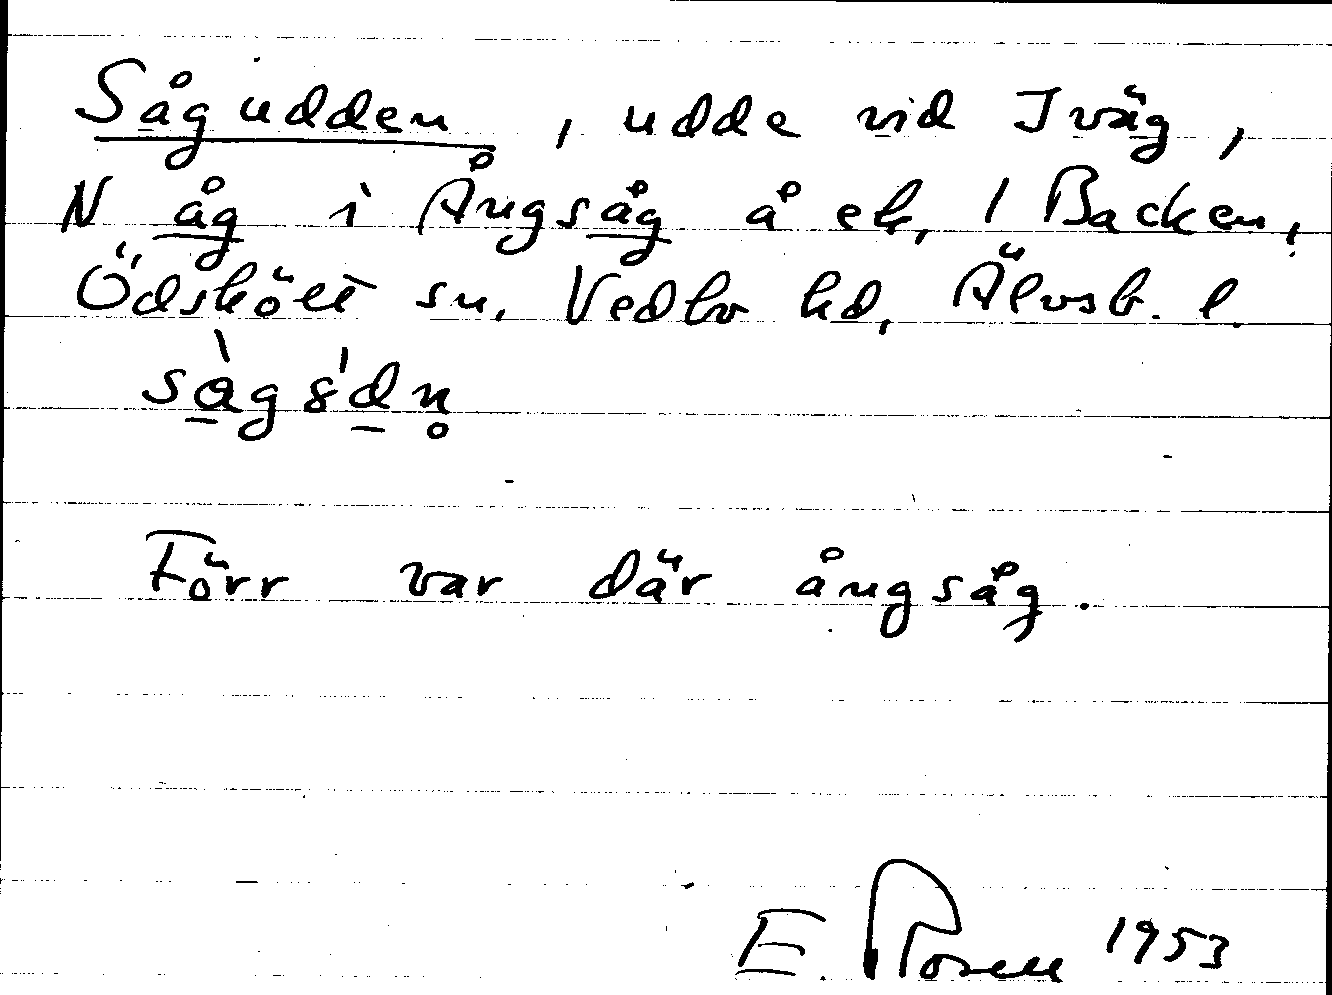 Sågudden, udde vid Iväg,
N åg i Ångsåg å ek, 1 Backen,
Ödskölt sn, Vedbo hd, Älvsb. l.
Förr var där ångsåg.
E. Rosell 1953